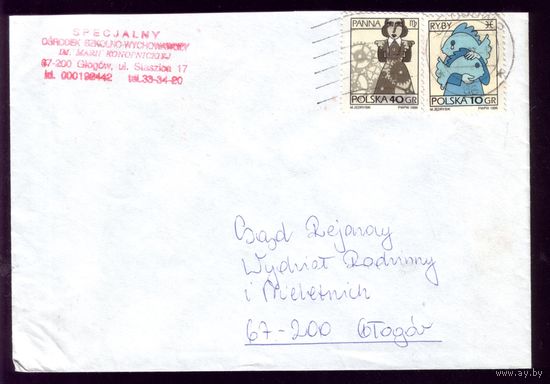 SPECJALNY
OŚRODEK SZKOLNO-WYCHOWAWCZY
IM. MARII KONOPNICKIEJ
67-200 Głogów, ul. Staszica 17
tel. 000192442 tel. 33-34-20
PANNA ♍
POLSKA 40 GR
M. JĘDRYSIK PWPW 1996
RYBY ♓
POLSKA 10 GR
M. JĘDRYSIK PWPW 1996
Sąd Rejonowy
Wydział Rodzinny
i Nieletnich
67-200 Głogów
www.ay.by